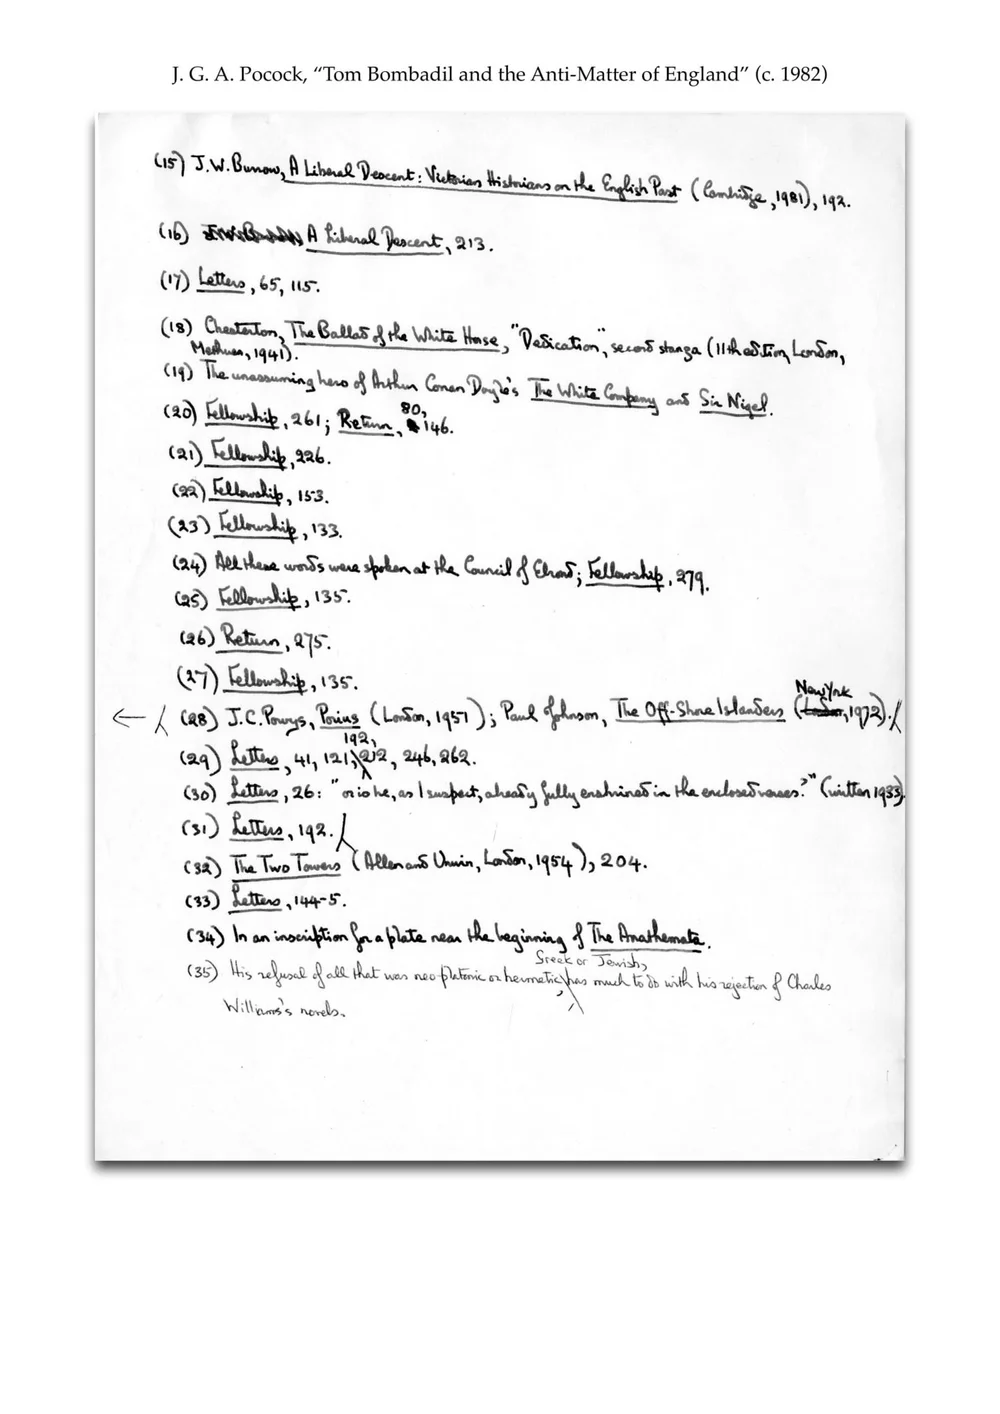 J. G. A. Pocock, “Tom Bombadil and the Anti-Matter of England” (c. 1982)
(15) J.W. Burrow, A Liberal Descent: Victorian Historians on the English Past (Cambridge, 1981), 192.
(16) A Liberal Descent, 213.
(17) Letters, 65, 115.
(18) Chesterton, The Ballad of the White Horse, "Dedication", second stanza (11th edition, London,
Methuen, 1941).
(19) The unassuming hero of Arthur Conan Doyle's The White Company and Sir Nigel.
(20) Fellowship, 261; Return, 80, 146.
(21) Fellowship, 226.
(22) Fellowship, 153.
(23) Fellowship, 133.
(24) All these words were spoken at the Council of Elrond; Fellowship, 279.
(25) Fellowship, 135.
(26) Return, 275.
(27) Fellowship, 135.
(28) J.C. Powys, Porius (London, 1951); Paul Johnson, The Off-Shore Islanders (New York, 1972).
(29) Letters, 41, 121, 192, 212, 246, 262.
(30) Letters, 26: "or is he, as I suspect, already fully enshrined in the enclosed verses?" (written 1933).
(31) Letters, 192.
(32) The Two Towers (Allen and Unwin, London, 1954), 204.
(33) Letters, 144-5.
(34) In an inscription for a plate near the beginning of The Anathemata.
(35) His refusal of all that was neo-platonic or hermetic, Greek or Jewish, has much to do with his rejection of Charles
Williams's novels.